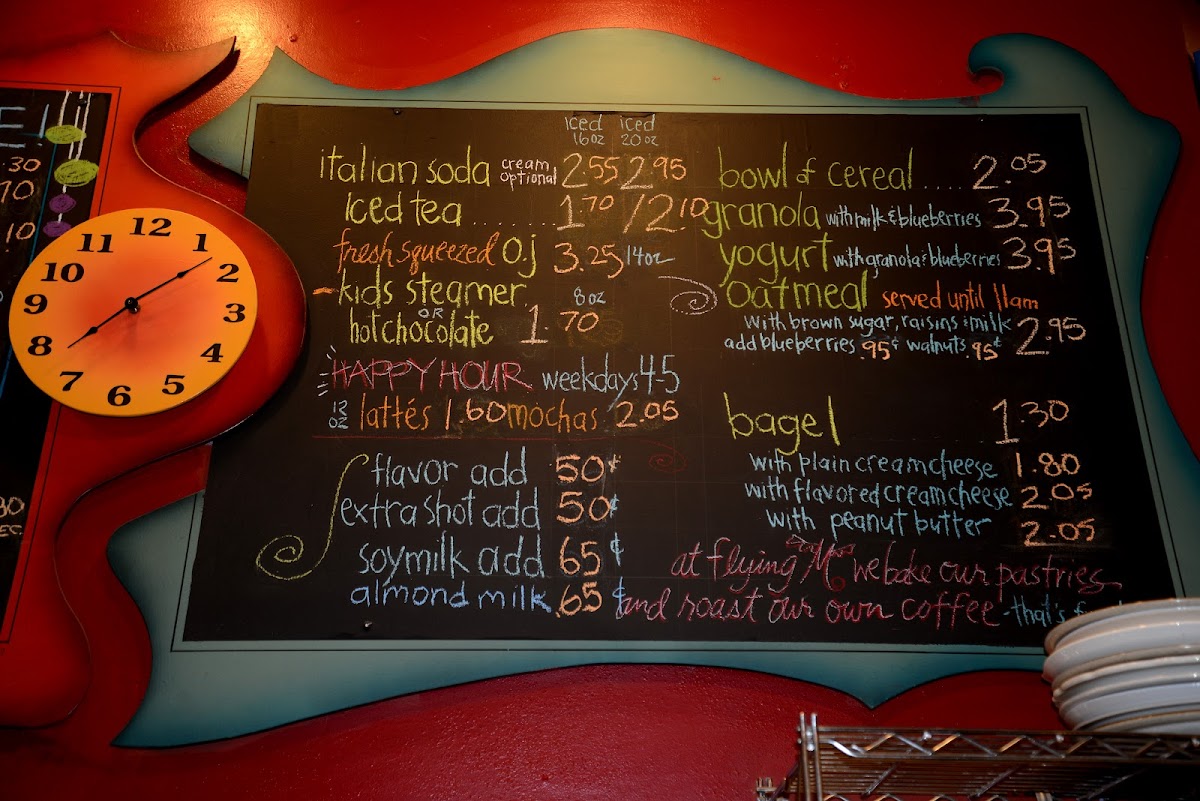 E!
.30
70
10
30
EC.
12
1
2
3
4
5
6
7
8
9
10
11
iced iced
16oz 20oz
italian soda cream optional 2.55 2.95
Iced tea ...... 1.70 / 2.10
fresh squeezed O.J 3.25 14oz
-kids steamer 8oz
OR
hot chocolate 1.70
HAPPY HOUR weekdays 4-5
12 oz lattés 1.60 mochas 2.05
flavor add 50¢
extra shot add 50¢
soymilk add 65¢
almond milk .65¢
bowl of cereal ..... 2.05
granola with milk & blueberries 3.95
yogurt with granola & blueberries 3.95
oatmeal served until 11am
with brown sugar, raisins & milk 2.95
add blueberries .95¢ walnuts .95¢
bagel 1.30
with plain cream cheese 1.80
with flavored cream cheese 2.05
with peanut butter 2.05
at flying M we bake our pastries
and roast our own coffee -that's